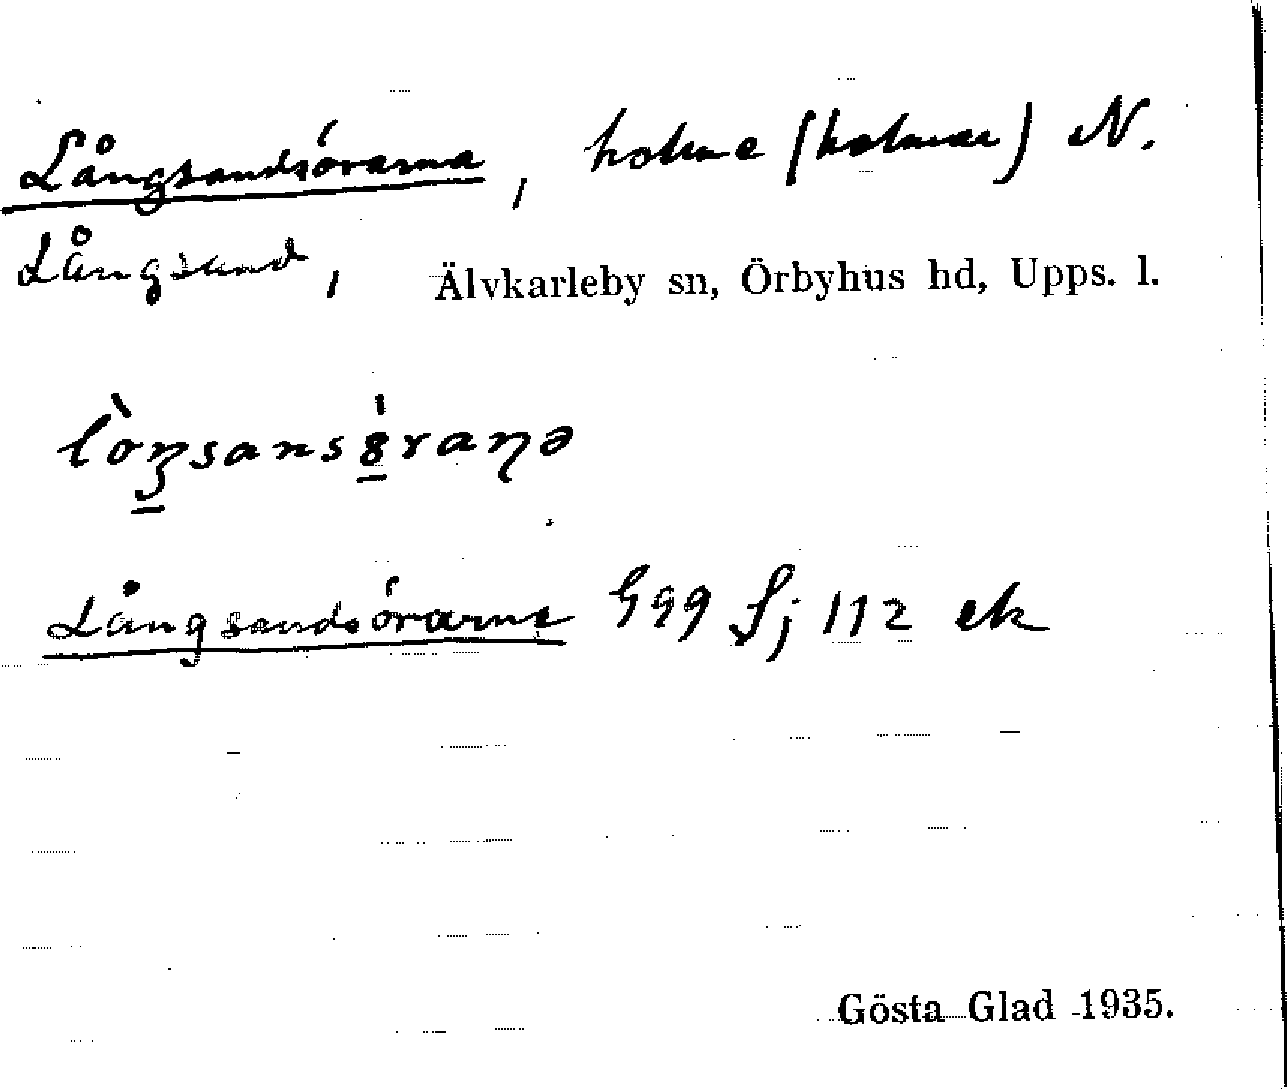 Långsandsörarna, holme (holmar) N.
Långsand, Älvkarleby sn, Örbyhus hd, Upps. l.
Långsandsörarne G99 Sj 112 ek
Gösta Glad 1935.